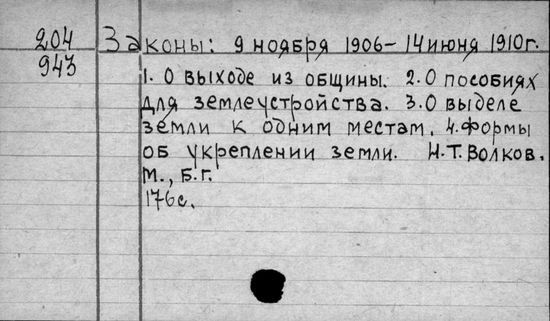 204
943
Законы: 9 ноября 1906 – 14 июня 1910 г.
1. О выходе из общины. 2. О пособиях
для землеустройства. 3. О выделе
земли к одним местам. 4. Формы
об укреплении земли. Н. Т. Волков.
М., Б. Г.
176 с.